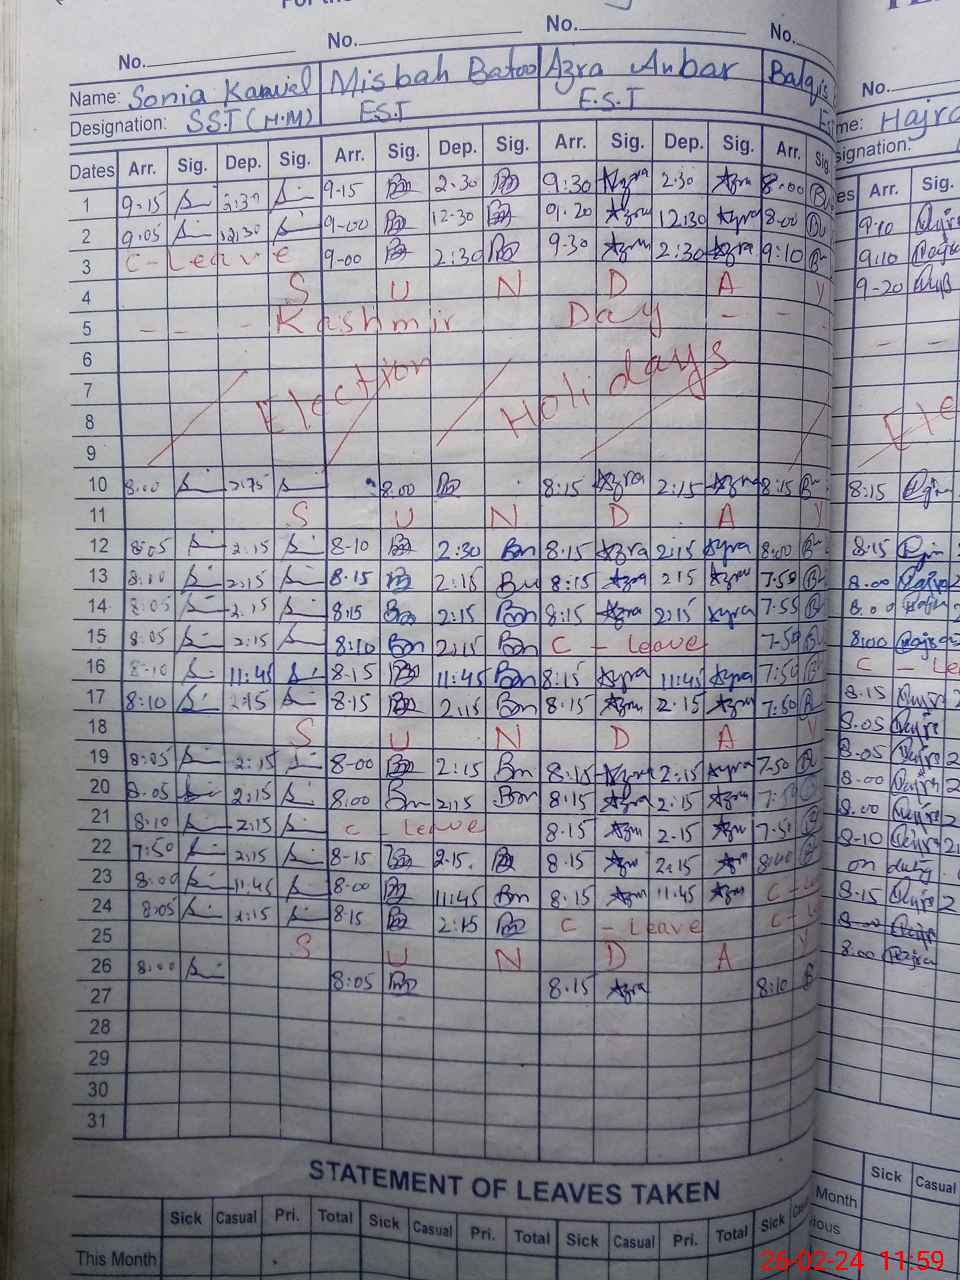 For the
No. No. No. No.
Name: Sonia Kanwel Misbah Batool Azra Anbar Balqis
Designation: SST (H.M) E.S.T E.S.T
Dates Arr. Sig. Dep. Sig. Arr. Sig. Dep. Sig. Arr. Sig. Dep. Sig. Arr. Sig.
1 9.15 2:30 9-15 2.30 9:30 Azra 2:30 Azra 8.00
2 9.05 12:30 9-00 12-30 9.20 Azra 12:30 Azra 8.00
3 C-Leave 9-00 2:30 9.30 Azra 2:30 Azra 9:10
4 S U N D A Y
5 - - - Kashmir Day - - -
6
7 Election Holidays
8
9
10 8.00 8.00 8:15 Azra 2:15 Azra 8:15
11 S U N D A Y
12 8:05 2:15 8-10 2:30 8.15 Azra 2:15 Azra 8:00
13 8:10 2:15 8.15 2:15 8:15 Azra 215 Azra 7.50
14 8:05 2.15 8:15 2:15 8:15 Azra 2:15 Azra 7:55
15 8:05 2:15 8:10 2:15 C - Leave 7-50
16 8-10 11:45 8.15 11:45 8:15 Azra 11:45 Azra 7:50
17 8:10 2:15 8.15 2:15 8.15 Azra 2.15 Azra 7:50
18 S U N D A Y
19 8:05 2:15 8-00 2:15 8:15 Azra 2:15 Azra 7.50
20 8.05 2:15 8.00 2:15 8.15 Azra 2.15 Azra
21 8:10 2:15 C - Leave 8.15 Azra 2.15 Azra 7:50
22 7:50 2:15 8-15 2.15. 8.15 Azra 2:15 8:00
23 8:00 11:45 8-00 11:45 8.15 Azra 11:45 Azra C - Le
24 8:05 2:15 8.15 2:15 C - Leave C - L
25 S U N D A Y
26 8:00 8:05 8.15 Azra 8:10
27
28
29
30
31
STATEMENT OF LEAVES TAKEN
Sick Casual Pri. Total Sick Casual Pri. Total Sick Casual Pri. Total Sick
This Month
No.
me: Hajra
signation:
es Arr. Sig.
9:10
9:10
9-20
- -
Ele
8:15
8.15
8.00
8.00
8:00
C - Le
8.15
8.05
8.05
8.00
8.00
8-10
on duty
8.15
8.00
8.00
Sick Casual
Month
ious
26-02-24 11:59